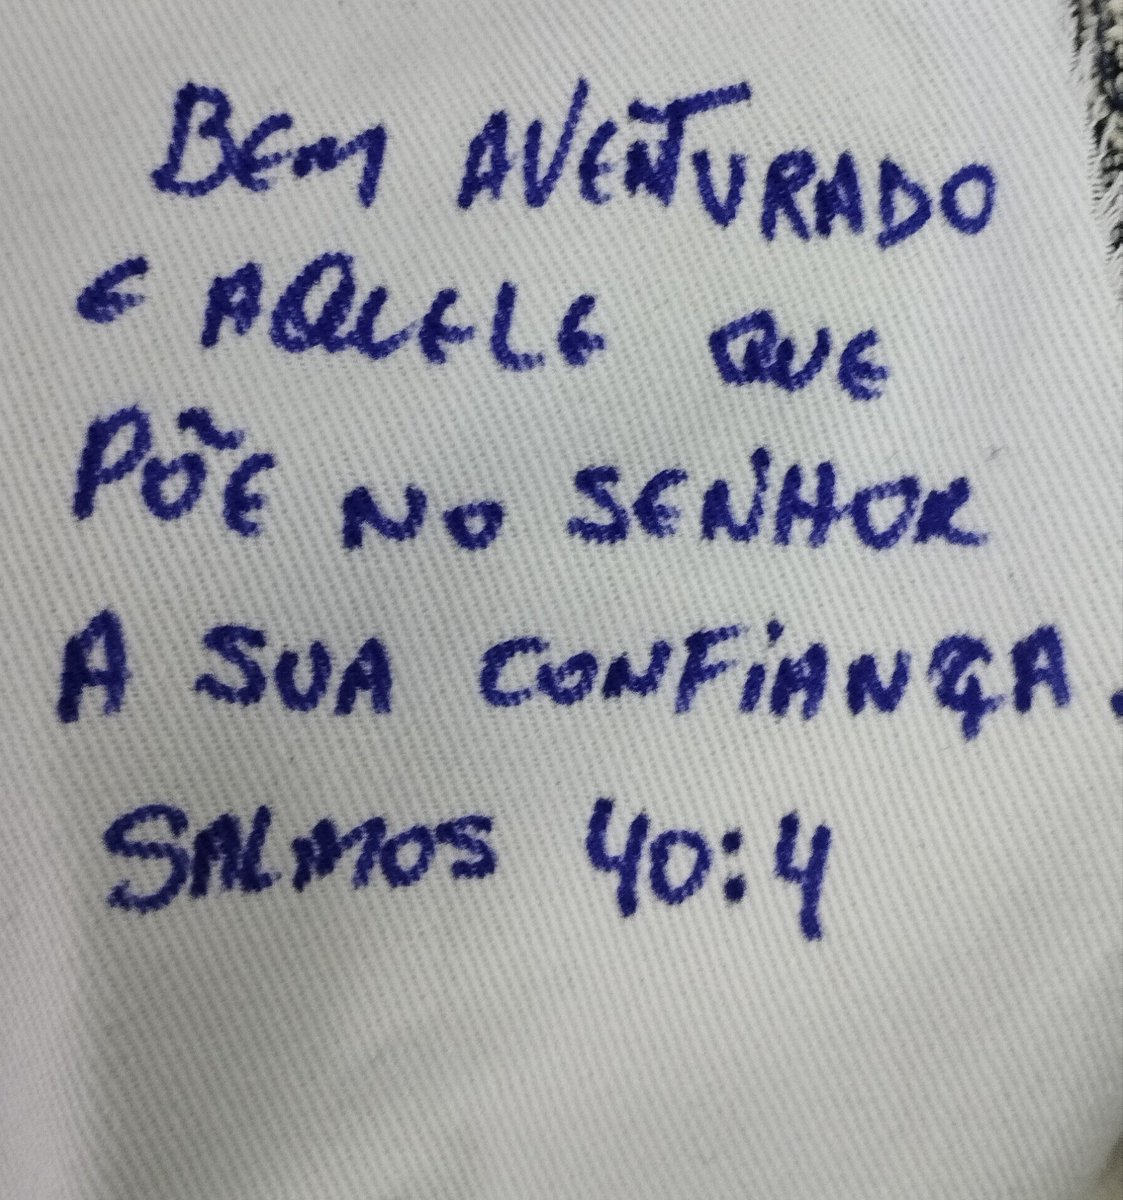 BEM AVENTURADO
E AQUELE QUE
PÕE NO SENHOR
A SUA CONFIANÇA.
SALMOS 40:4